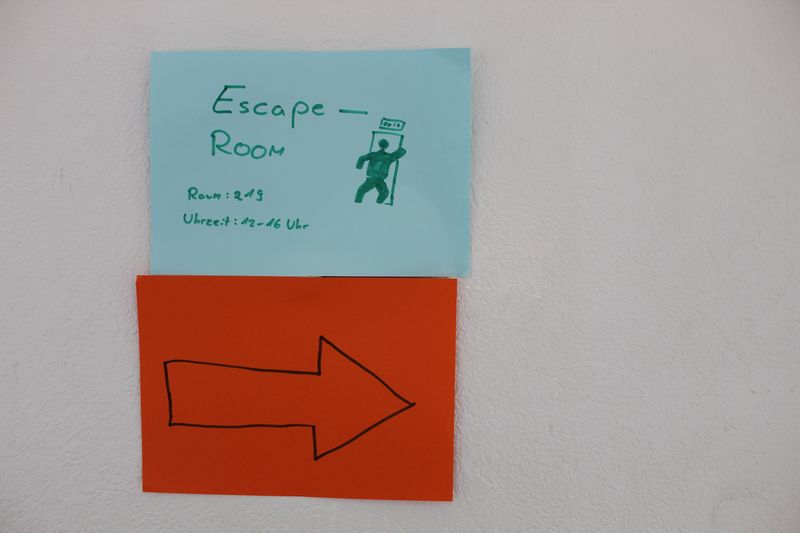 Escape-
Room
Raum: 219
Uhrzeit: 12-16 Uhr